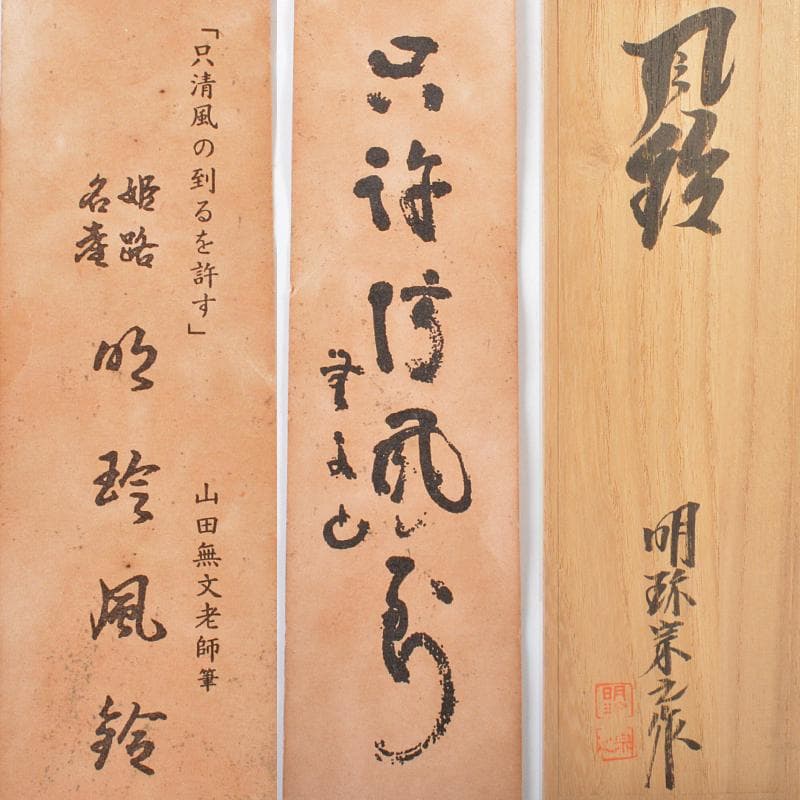 「只清風の到るを許す」
山田無文老師筆
姫路
名産
明珍風鈴
只許清風到
無文
風鈴
明珍宗之作